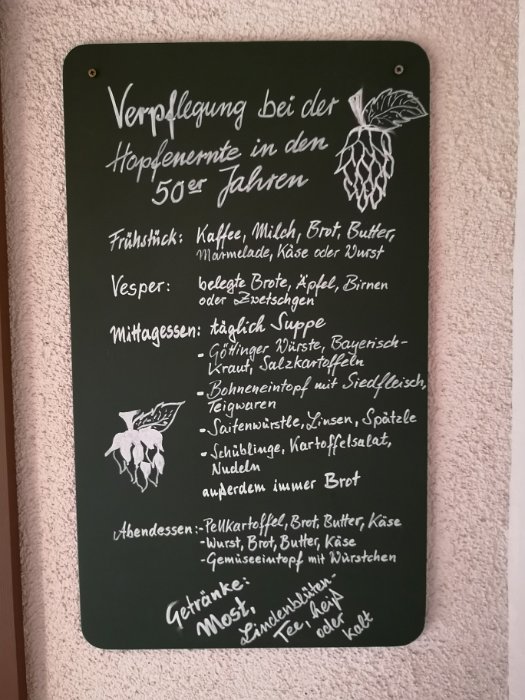 Verpflegung bei der
Hopfenernte in den
50er Jahren
Frühstück: Kaffee, Milch, Brot, Butter,
Marmelade, Käse oder Wurst
Vesper: belegte Brote, Äpfel, Birnen
oder Zwetschgen
Mittagessen: täglich Suppe
- Göttinger Würste, Bayerisch-
Kraut, Salzkartoffeln
- Bohneneintopf mit Siedfleisch,
Teigwaren
- Saitenwürstle, Linsen, Spätzle
- Schüblinge, Kartoffelsalat,
Nudeln
außerdem immer Brot
Abendessen: - Pellkartoffel, Brot, Butter, Käse
- Wurst, Brot, Butter, Käse
- Gemüseeintopf mit Würstchen
Getränke:
Most,
Lindenblüten-
Tee, heiß
oder
kalt